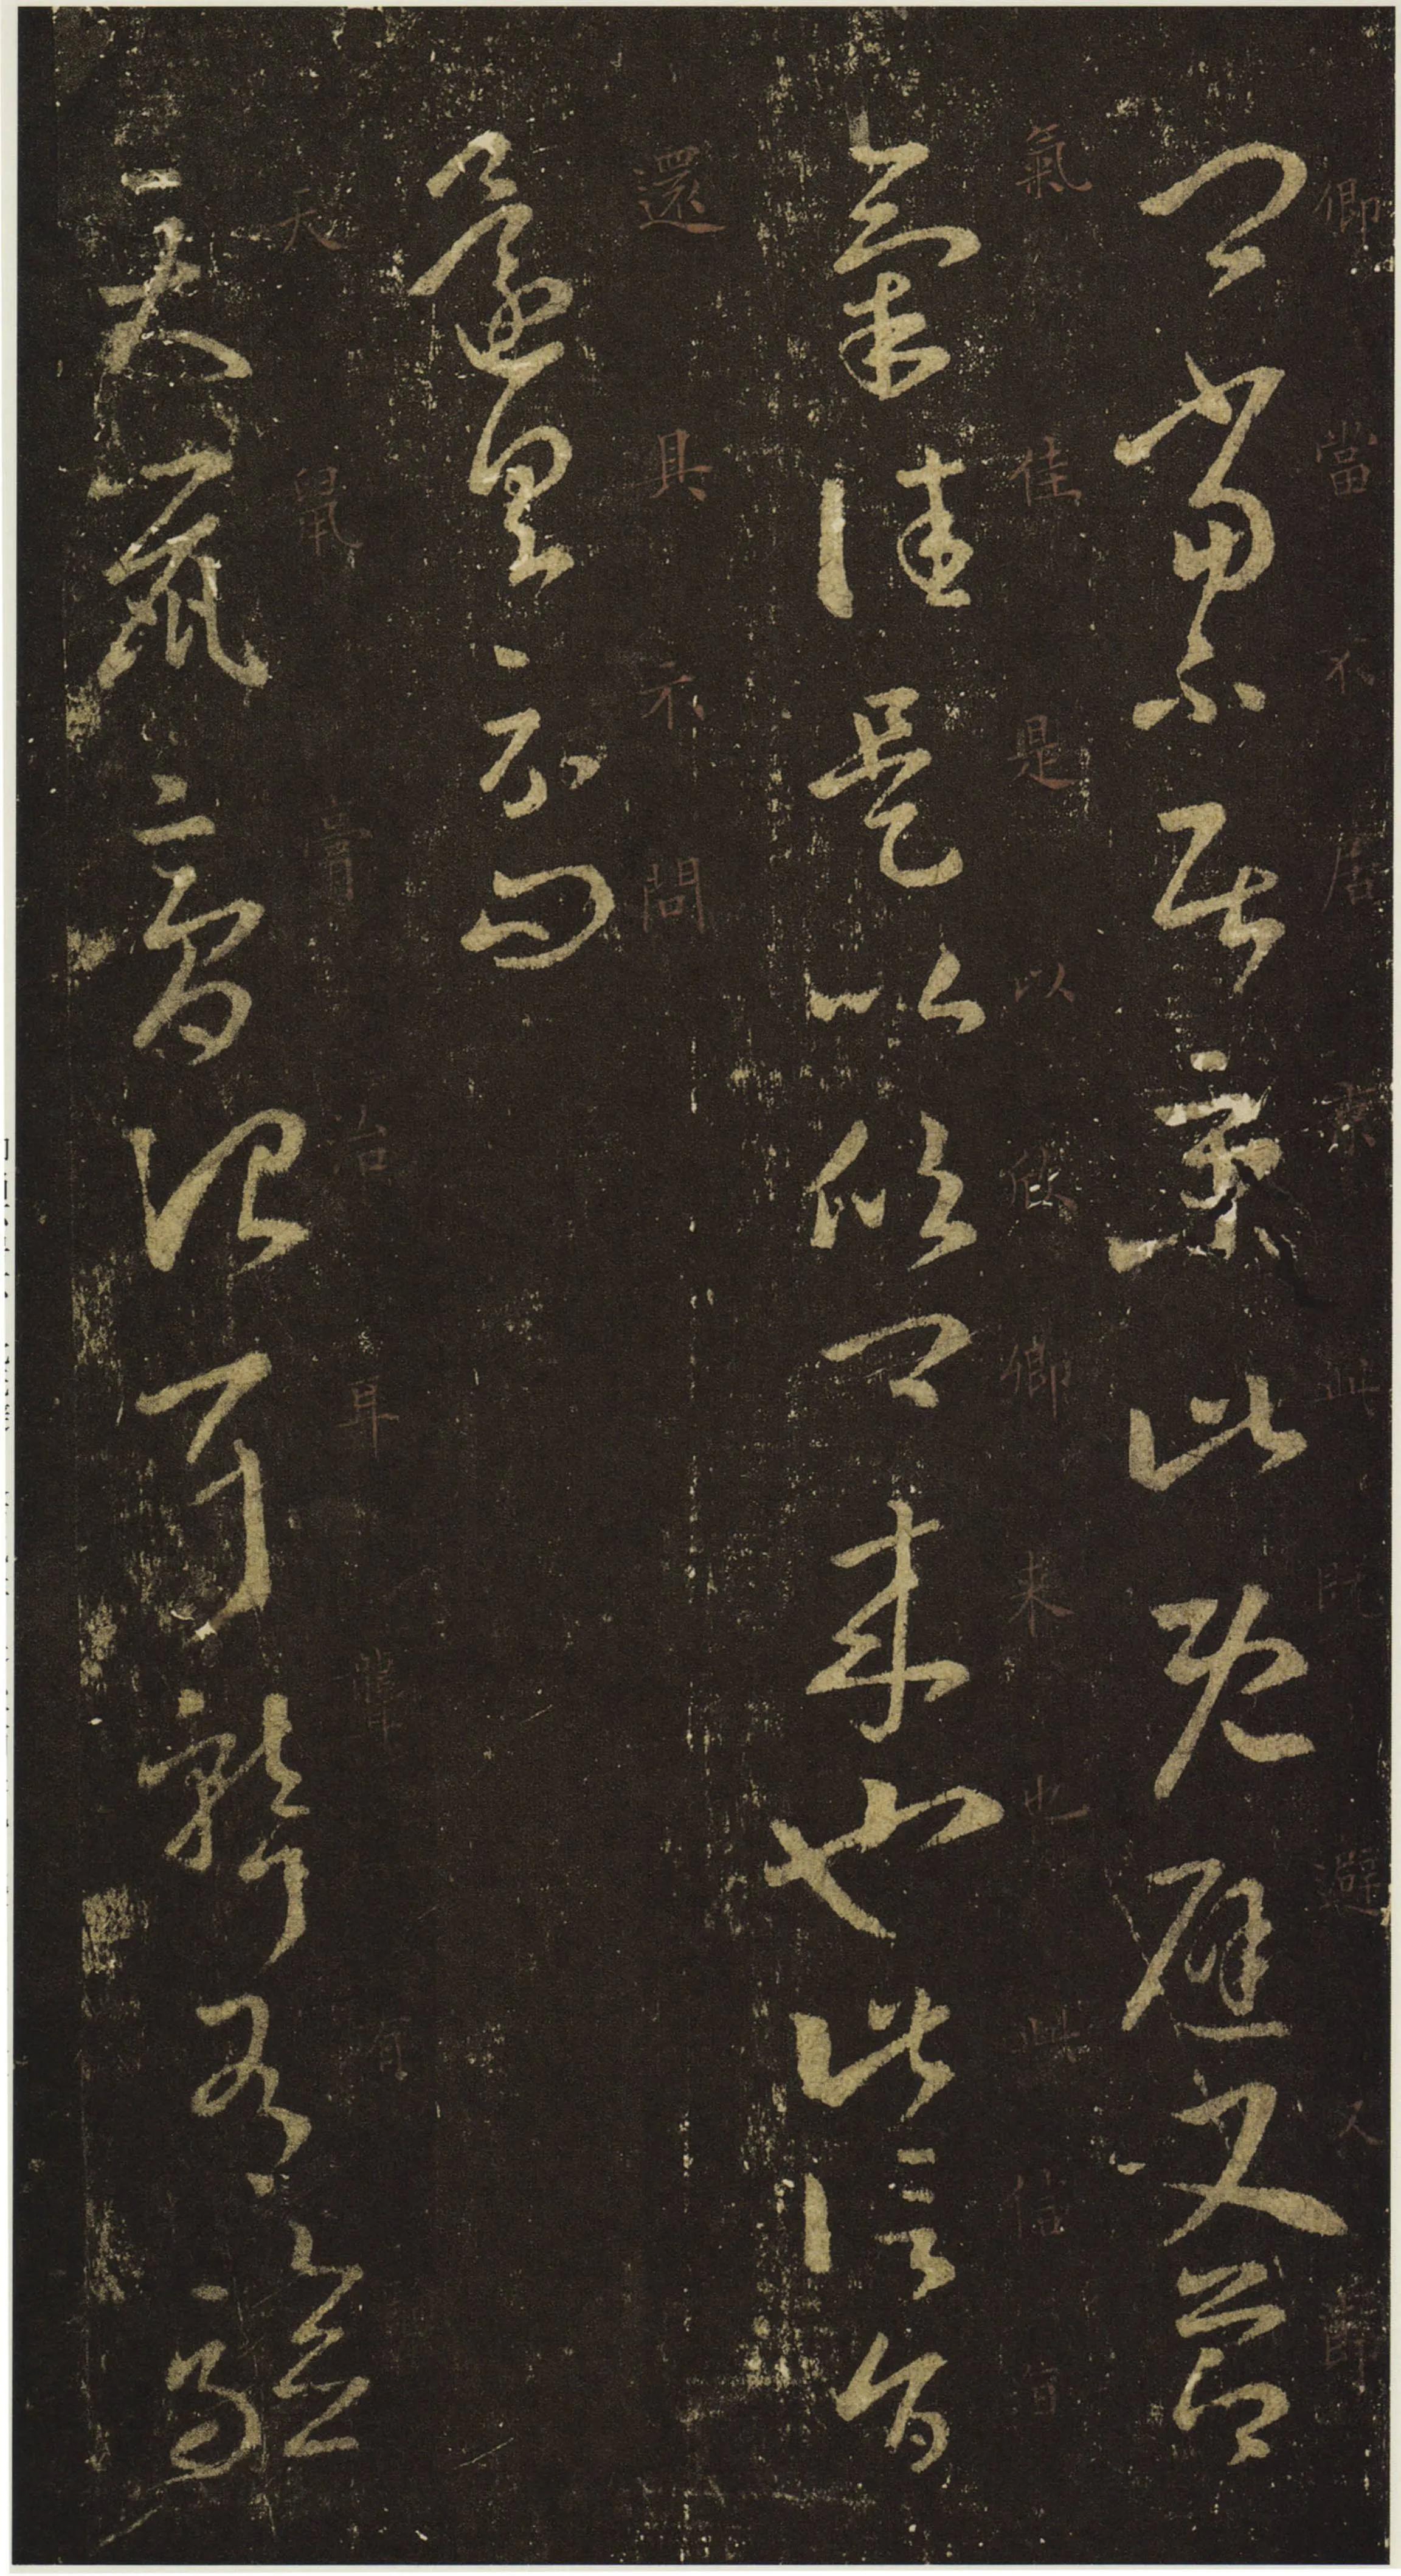 卿當不居京此既避又節
氣佳是以欣卿來也此信旨
還具示問
天鼠膏治耳聾有驗